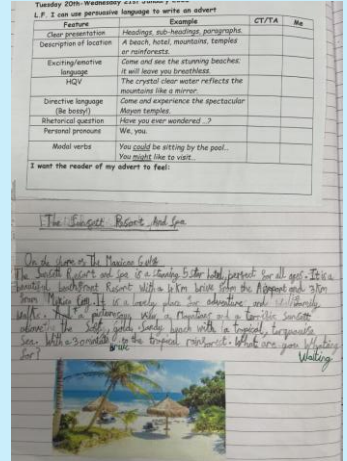 Tuesday 20th-Wednesday 21st January
L.F. I can use persuasive language to write an advert
Feature Example CT/TA Me
Clear presentation Headings, sub-headings, paragraphs.
Description of location A beach, hotel, mountains, temples
or rainforests.
Exciting/emotive Come and see the stunning beaches;
language it will leave you breathless.
HQV The crystal clear water reflects the
mountains like a mirror.
Directive language Come and experience the spectacular
(Be bossy!) Mayan temples.
Rhetorical question Have you ever wondered ..?
Personal pronouns We, you.
Modal verbs You could be sitting by the pool..
You might like to visit..
I want the reader of my advert to feel:
The Sunsett Resort And Spa
On the shore of The Mexican Gulf
The Sunsett Resort and Spa is a stunning 5 star hotel, perfect for all ages. It is a
beautiful beachfront Resort with a 4km drive from the and 3km
from City. It is a lovely place for adventure and family
walks. And a view, a and a terrific Sunsett
above the Soft, gold, sandy beach with a tropical, turquoise
Sea. With a 30 minute to the tropical rainforest. What are you Whyting
for?
Drive
Waiting